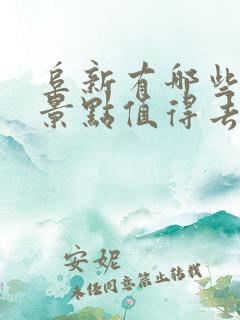 阜新有哪些
景點值得去
安妮
未经同意禁止转载